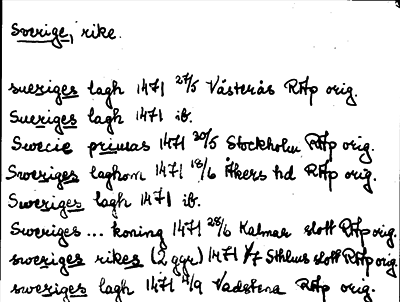 Sverige, rike.
sueriges lagh 1471 27/5 Västerås RAp orig.
Sueriges lagh 1471 ib.
Swecie primas 1471 30/5 Stockholm RAp orig.
Swerigis laghom 1471 18/6 Åkers hd RAp orig.
Sweriges lagh 1471 ib.
Sweriges ... koning 1471 28/6 Kalmar slott RAp orig.
sweriges rikes (2 ggr) 1471 1/7 Sthlms slott RAp orig.
sweriges lagh 1471 4/9 Vadstena RAp orig.